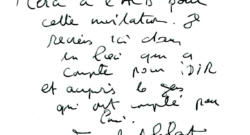 Merci à l'ACB pour
cette invitation. Je
reviens ici dans
un lieu qui a
compté pour IDIR
et auprès de gens
qui ont compté pour
lui.